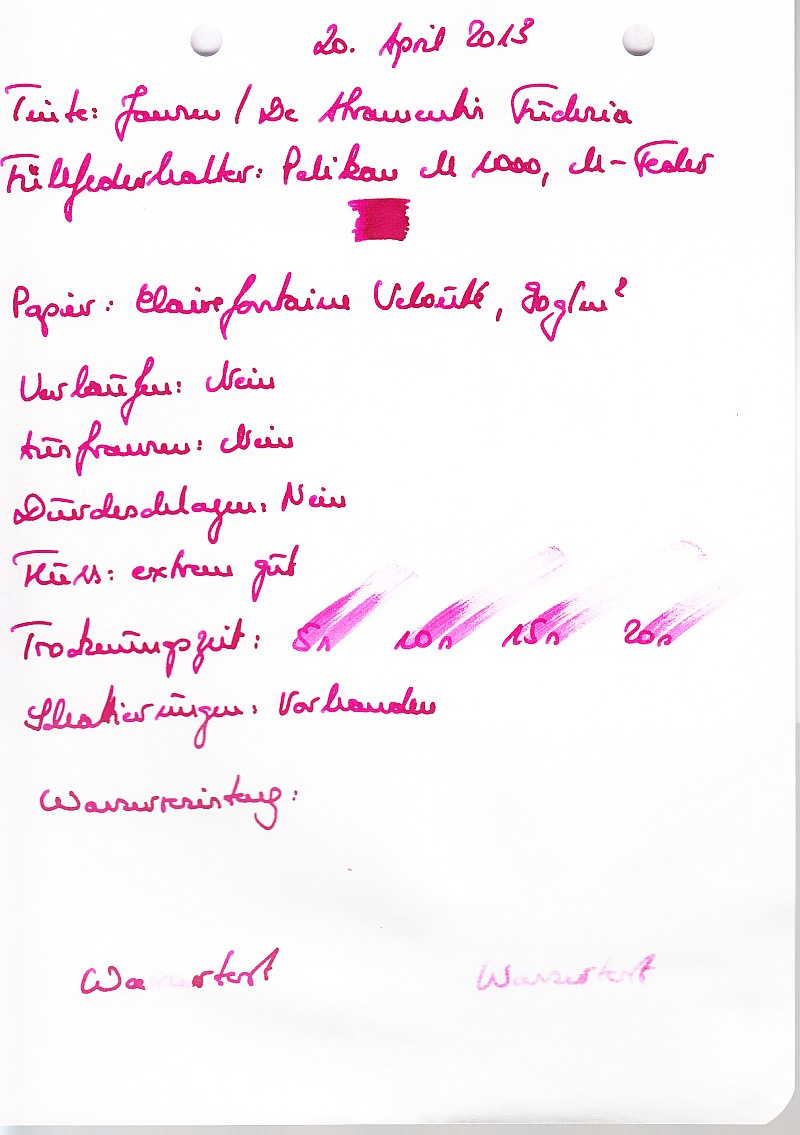 20. April 2013
Tinte: Jansen / De Atramentis Fuchsia
Füllfederhalter: Pelikan M 1000, M-Feder
Papier: Clairefontaine Velouté, 90g/m²
Verlaufen: Nein
Ausfransen: Nein
Durchschlagen: Nein
Fluss: extrem gut
Trocknungszeit: 5s 10s 15s 20s
Schattierungen: Vorhanden
Wasserresistenz:
Wassertest Wassertest